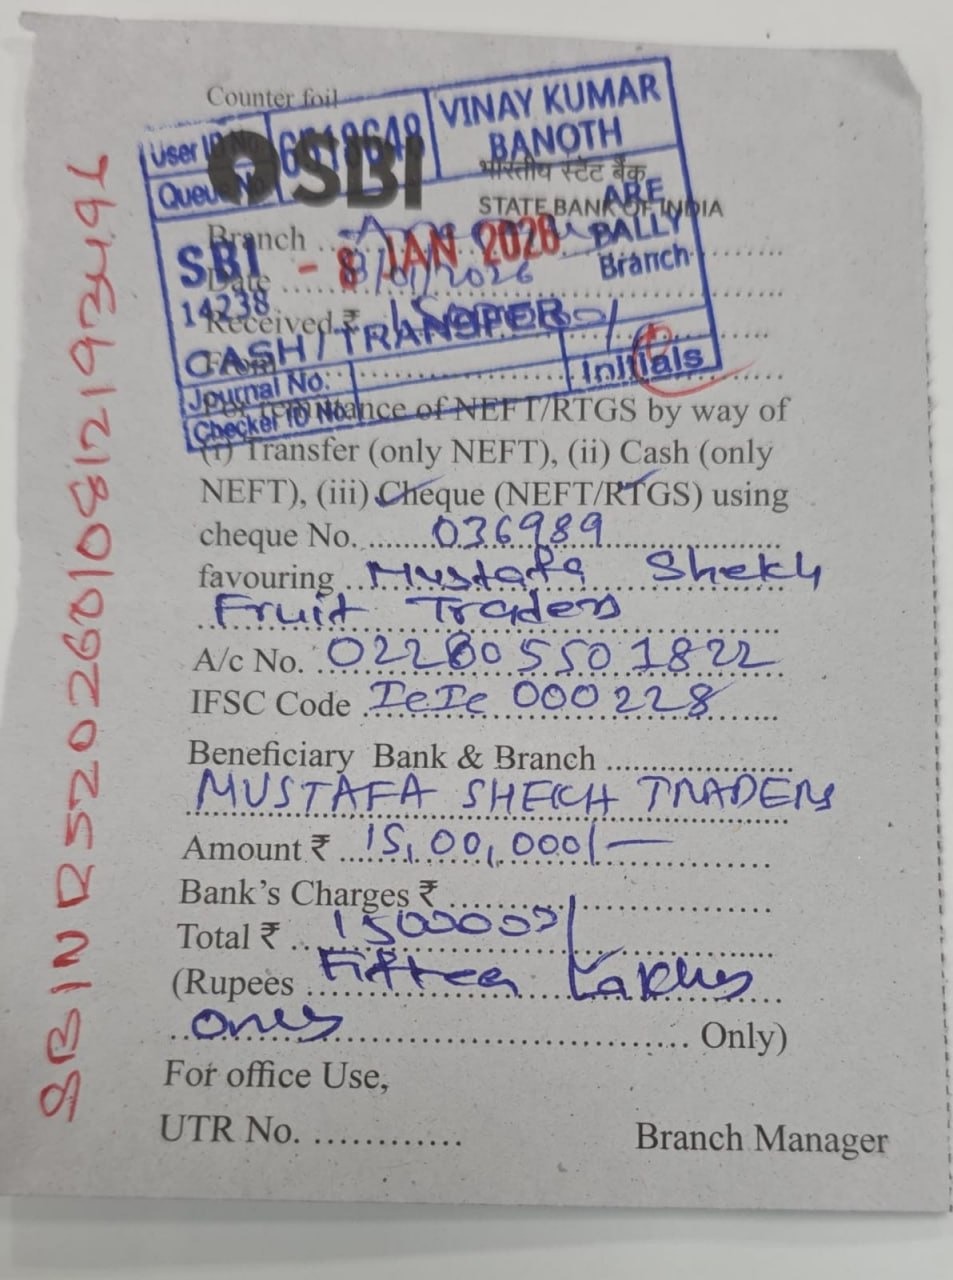 Counter foil
User ID No. 6518648 VINAY KUMAR
BANOTH
Queue No.
SBI
भारतीय स्टेट बैंक
STATE BANK OF INDIA
ARE
BALLY
Branch
Branch
SBI - 8 JAN 2026
Date 8/01/2026
14238
Received ₹
CASH / TRANSFER
From
Initials
Journal No.
Checker ID No.
For remittance of NEFT/RTGS by way of
(i) Transfer (only NEFT), (ii) Cash (only
NEFT), (iii) Cheque (NEFT/RTGS) using
cheque No. 036989
favouring Mustafa Shekh
Fruit Traders
A/c No. 022805501822
IFSC Code IcIc 000228
Beneficiary Bank & Branch
MUSTAFA SHEKH TRADERS
Amount ₹ 15,00,000/-
Bank's Charges ₹
Total ₹ 1500000/
(Rupees Fifteen Lakhs
only Only)
For office Use,
UTR No.
Branch Manager
SBINR52026010812193491